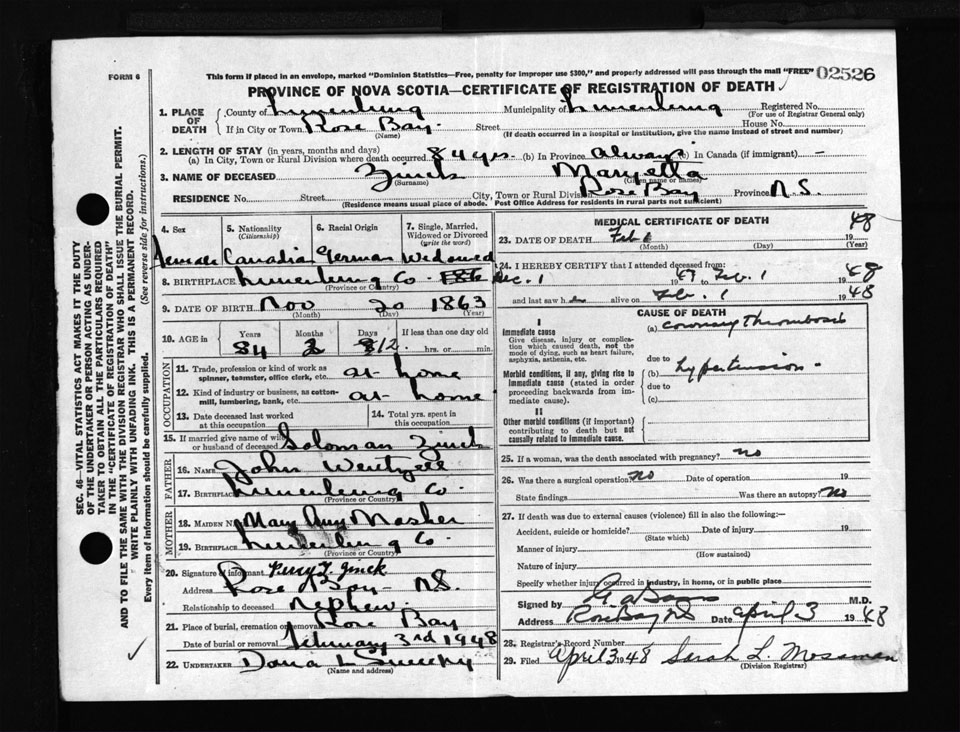 FORM 6
This form if placed in an envelope, marked "Dominion Statistics—Free, penalty for improper use $300," and properly addressed will pass through the mail "FREE" 02526
PROVINCE OF NOVA SCOTIA—CERTIFICATE OF REGISTRATION OF DEATH
SEC. 46—VITAL STATISTICS ACT MAKES IT THE DUTY
OF THE UNDERTAKER OR PERSON ACTING AS UNDER-
TAKER TO OBTAIN ALL THE PARTICULARS REQUIRED
IN THE "CERTIFICATE OF REGISTRATION OF DEATH"
AND TO FILE THE SAME WITH THE DIVISION REGISTRAR WHO SHALL ISSUE THE BURIAL PERMIT.
WRITE PLAINLY WITH UNFADING INK. THIS IS A PERMANENT RECORD.
Every item of information should be carefully supplied. (See reverse side for instructions.)
1. PLACE OF DEATH County of Lunenburg Municipality of Lunenburg Registered No.
(For use of Registrar General only)
If in City or Town Rose Bay Street House No.
(Name) (If death occurred in a hospital or institution, give the name instead of street and number)
2. LENGTH OF STAY (in years, months and days)
(a) In City, Town or Rural Division where death occurred 84 yrs. (b) In Province always (c) In Canada (if immigrant) —
3. NAME OF DECEASED Zinck Maryella
(Surname) (Given name or names)
RESIDENCE No. Street City, Town or Rural Division Rose Bay Province N.S.
(Residence means usual place of abode. Post Office Address for residents in rural parts not sufficient)
4. Sex 5. Nationality (Citizenship) 6. Racial Origin 7. Single, Married, Widowed or Divorced (write the word)
Female Canadian German Widowed
8. BIRTHPLACE Lunenburg Co.
(Province or Country)
9. DATE OF BIRTH Nov 20 1863
(Month) (Day) (Year)
10. AGE in Years Months Days If less than one day old
84 2 12 hrs. or min.
OCCUPATION
11. Trade, profession or kind of work as spinner, teamster, office clerk, etc. at home
12. Kind of industry or business, as cotton-mill, lumbering, bank, etc. at home
13. Date deceased last worked at this occupation 14. Total yrs. spent in this occupation
15. If married give name of wife or husband of deceased Soloman Zinck
FATHER
16. NAME John Wentzell
17. BIRTHPLACE Lunenburg Co.
(Province or Country)
MOTHER
18. MAIDEN N Mary Any Mosher
19. BIRTHPLACE Lunenburg Co.
(Province or Country)
20. Signature of informant Perry T. Zinck
Address Rose Bay N.S.
Relationship to deceased nephew
21. Place of burial, cremation or removal Rose Bay
Date of burial or removal February 3rd 1948
22. UNDERTAKER Dana L Sweeny
(Name and address)
MEDICAL CERTIFICATE OF DEATH
23. DATE OF DEATH Feb 1 1948
(Month) (Day) (Year)
24. I HEREBY CERTIFY that I attended deceased from:
Dec. 1 1947 to Feb. 1 1948
and last saw her alive on Feb. 1 1948
CAUSE OF DEATH
I
Immediate cause
Give disease, injury or complication which caused death, not the mode of dying, such as heart failure, asphyxia, asthenia, etc.
(a) coronary thrombosis
due to
Morbid conditions, if any, giving rise to immediate cause (stated in order proceeding backwards from immediate cause).
(b) hypertension
due to
(c)
II
Other morbid conditions (if important) contributing to death but not causally related to immediate cause.
25. If a woman, was the death associated with pregnancy? no
26. Was there a surgical operation? no Date of operation 19
State findings Was there an autopsy? no
27. If death was due to external causes (violence) fill in also the following:—
Accident, suicide or homicide? Date of injury 19
(State which)
Manner of injury
(How sustained)
Nature of injury
Specify whether injury occurred in industry, in home, or in public place
Signed by M.D.
Address Rose Bay NS Date april 3 1948
28. Registrar's Record Number
29. Filed April 3 1948 Sarah L. Mossman
(Division Registrar)